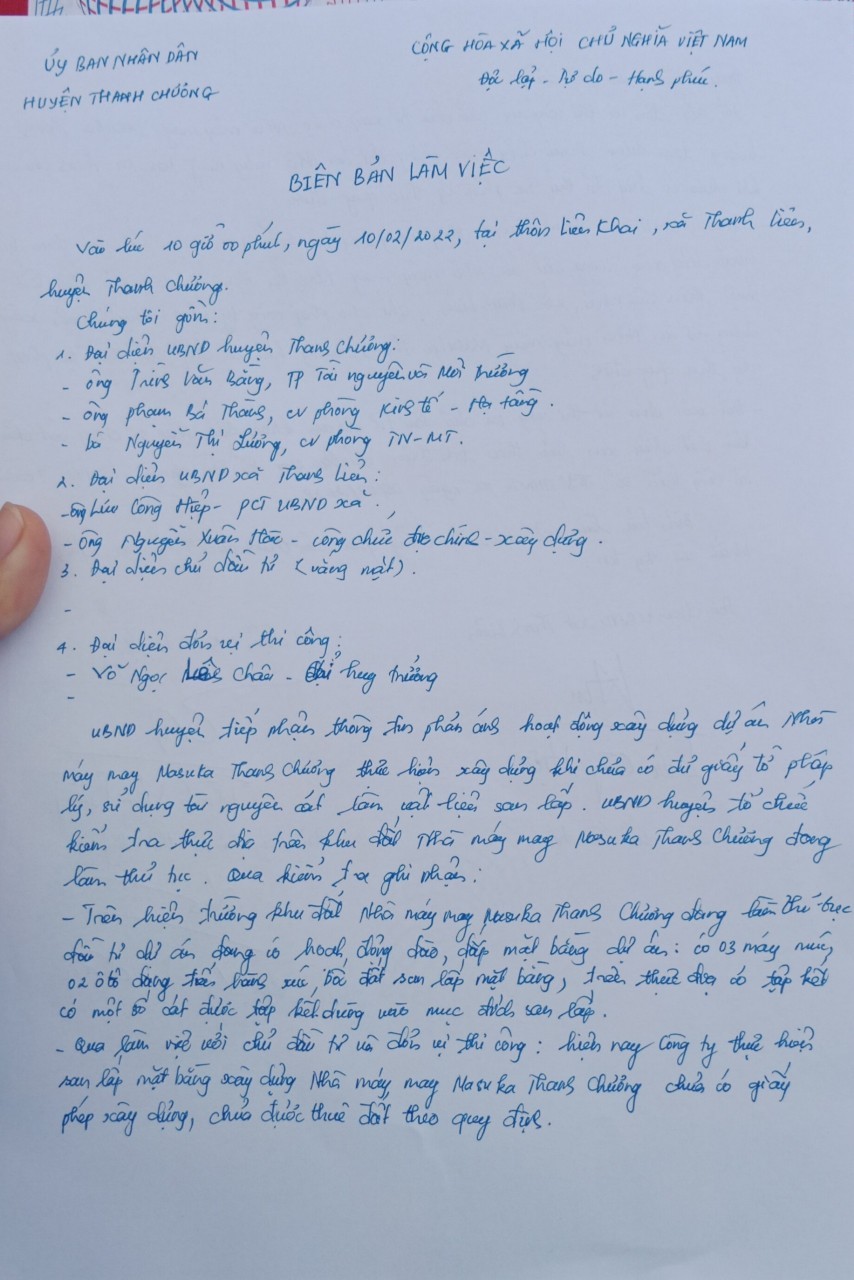 ỦY BAN NHÂN DÂN
HUYỆN THANH CHƯƠNG
CỘNG HÒA XÃ HỘI CHỦ NGHĨA VIỆT NAM
Độc lập - Tự do - Hạnh phúc.
BIÊN BẢN LÀM VIỆC
Vào lúc 10 giờ 00 phút, ngày 10/02/2022, tại thôn Liên Khai, xã Thanh Liên,
huyện Thanh Chương.
Chúng tôi gồm:
1. Đại diện UBND huyện Thanh Chương:
- ông Trình Văn Bằng, TP Tài nguyên và Môi trường
- ông Phạm Bá Thắng, cv phòng Kinh tế - Hạ tầng.
- bà Nguyễn Thị Lương, cv phòng TN-MT.
2. Đại diện UBND xã Thanh Liên:
- ông Lưu Công Hiệp - PCT UBND xã.,
- ông Nguyễn Xuân - công chức địa chính - xây dựng.
3. Đại diện chủ đầu tư (vắng mặt).
-
4. Đại diện đơn vị thi công:
- Võ Ngọc Châu - huy trưởng
-
UBND huyện tiếp nhận thông tin phản ánh hoạt động xây dựng dự án Nhà
máy may Nasuka Thanh Chương thực hiện xây dựng khi chưa có đủ giấy tờ pháp
lý, sử dụng tài nguyên cát làm vật liệu san lấp. UBND huyện tổ chức
kiểm tra thực địa trên khu đất Nhà máy may Nasuka Thanh Chương đang
làm thủ tục. Qua kiểm tra ghi nhận:
- Trên hiện trường khu đất Nhà máy may Nasuka Thanh Chương đang làm thủ tục
đầu tư dự án đang có hoạt động đào, đắp mặt bằng dự án: có 03 máy múc,
02 ô tô đang tiến hành xúc, bốc đất san lấp mặt bằng, trên thực địa có tập kết
có một số cát được tập kết dùng vào mục đích san lấp.
- Qua làm việc với chủ đầu tư và đơn vị thi công: hiện nay Công ty thực hiện
san lấp mặt bằng xây dựng Nhà máy may Nasuka Thanh Chương chưa có giấy
phép xây dựng, chưa được thuê đất theo quy định.